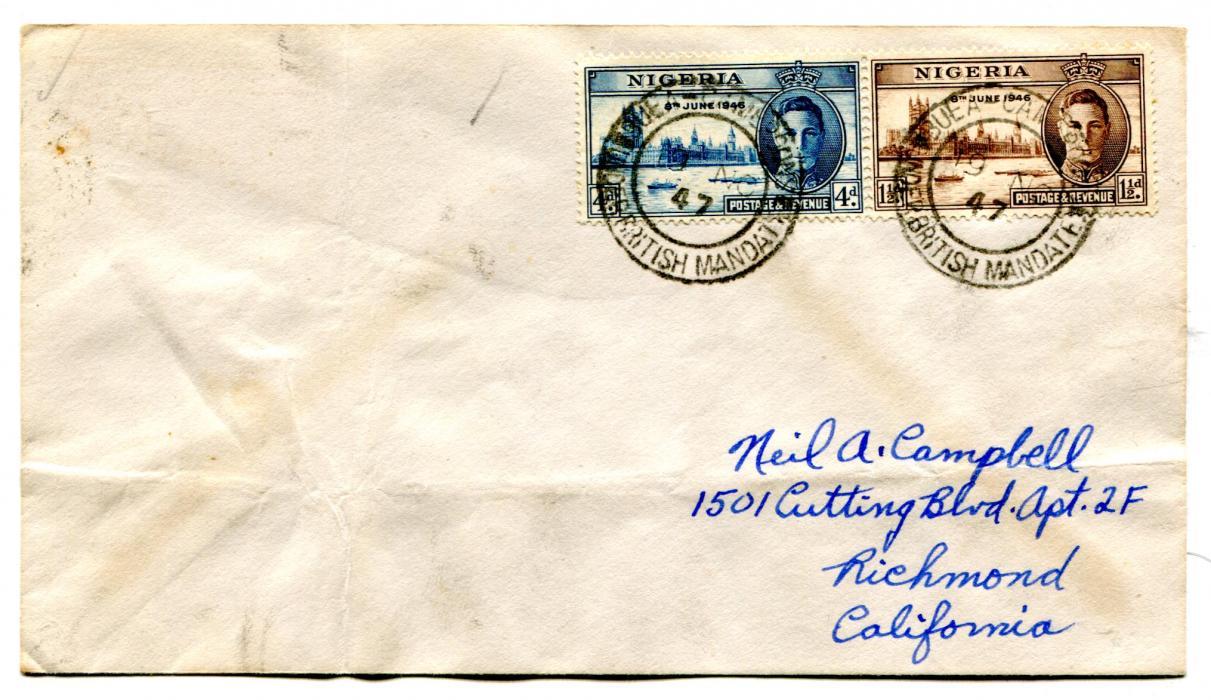 NIGERIA
8TH JUNE 1946
4d.
POSTAGE & REVENUE
4d.
NIGERIA
8TH JUNE 1946
1½d.
POSTAGE & REVENUE
1½d.
47
BRITISH MANDATE
BUEA CAM
47
BRITISH MANDATE
Neil A. Campbell
1501 Cutting Blvd. Apt. 2F
Richmond
California